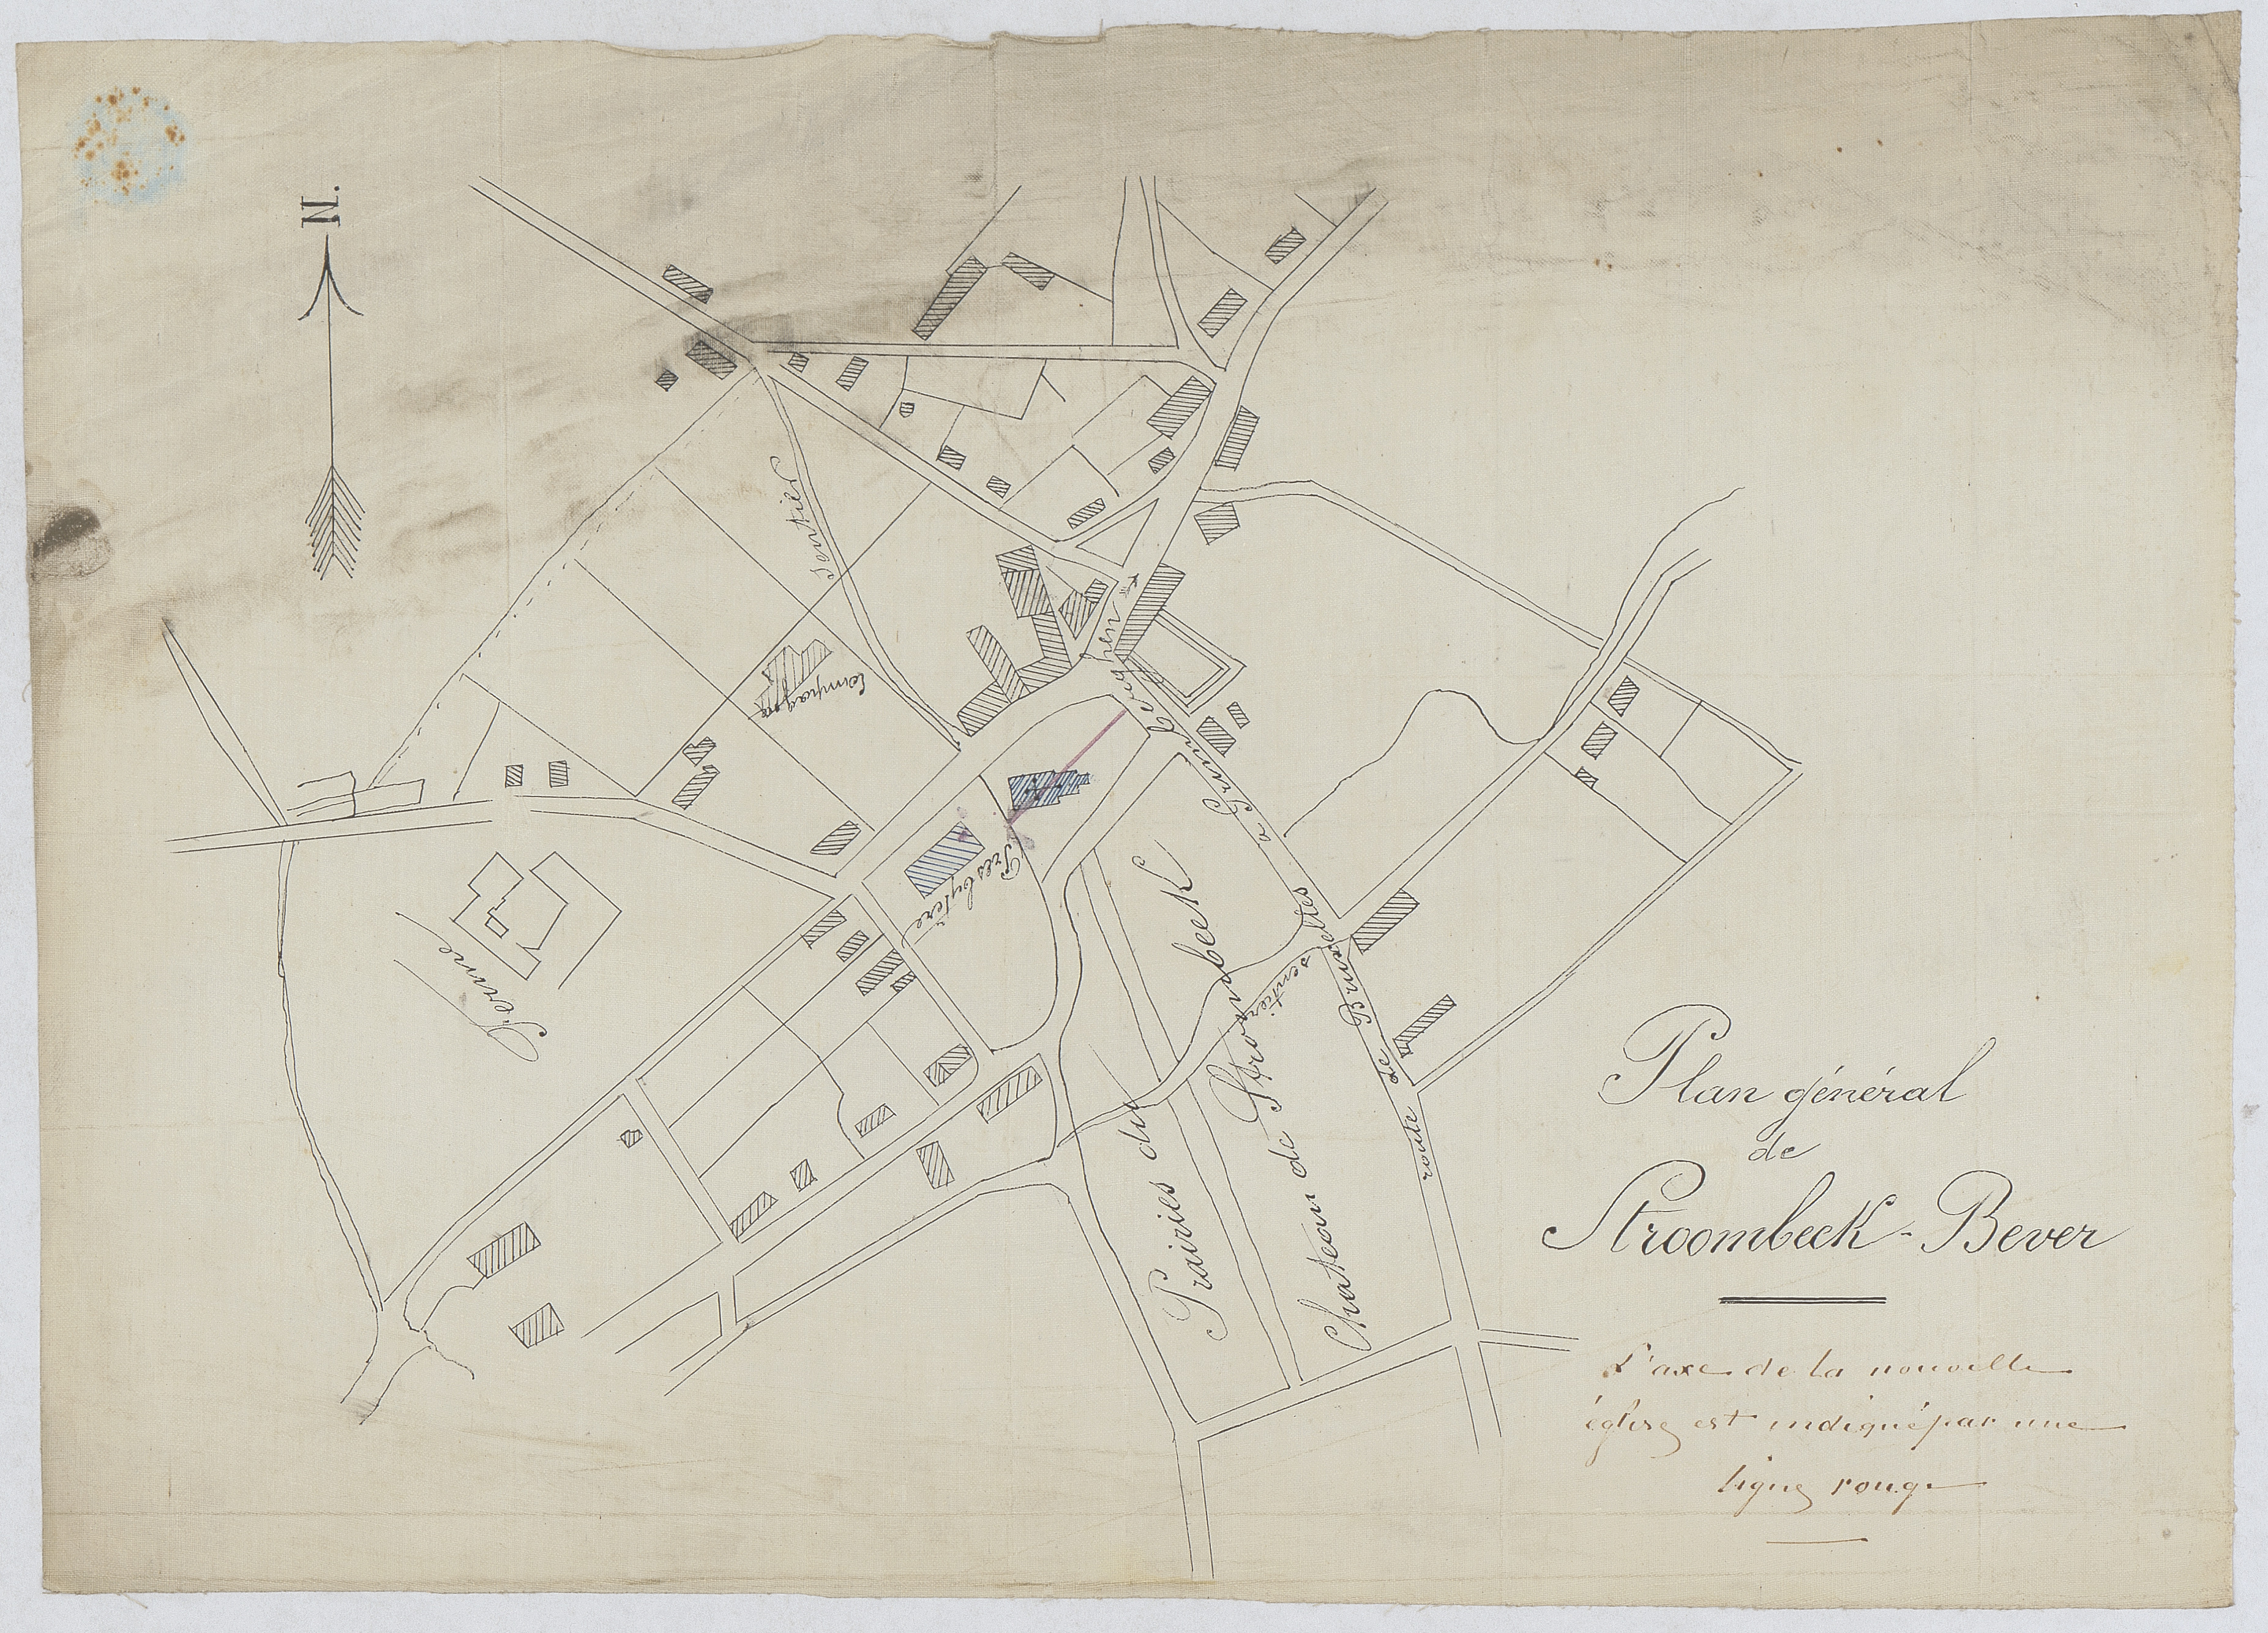 N.
sentier
Campagne
Ferme
Presbytère
route de Bruxelles a Grimberghen
sentier
Prairies du
Chateau de Strombeek
Plan général
de
Stroombeek-Bever
L'axe de la nouvelle
église est indiqué par une
ligne rouge